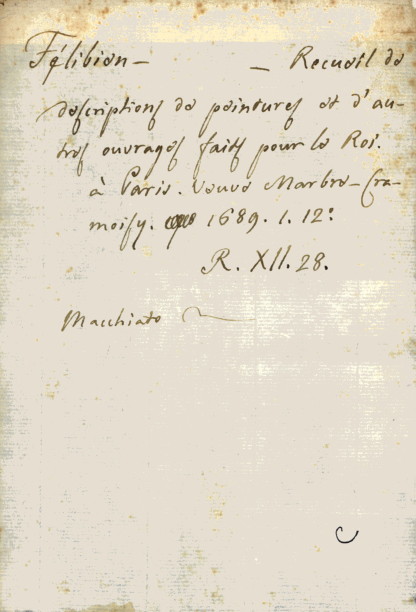 Félibien — — Recueil de
descriptions de peintures et d'au-
tres ouvrages faits pour le Roi.
à Paris. Veuve Marbre-Cra-
moisy. 1689. 1. 12.°
R. XII. 28.
Macchiato